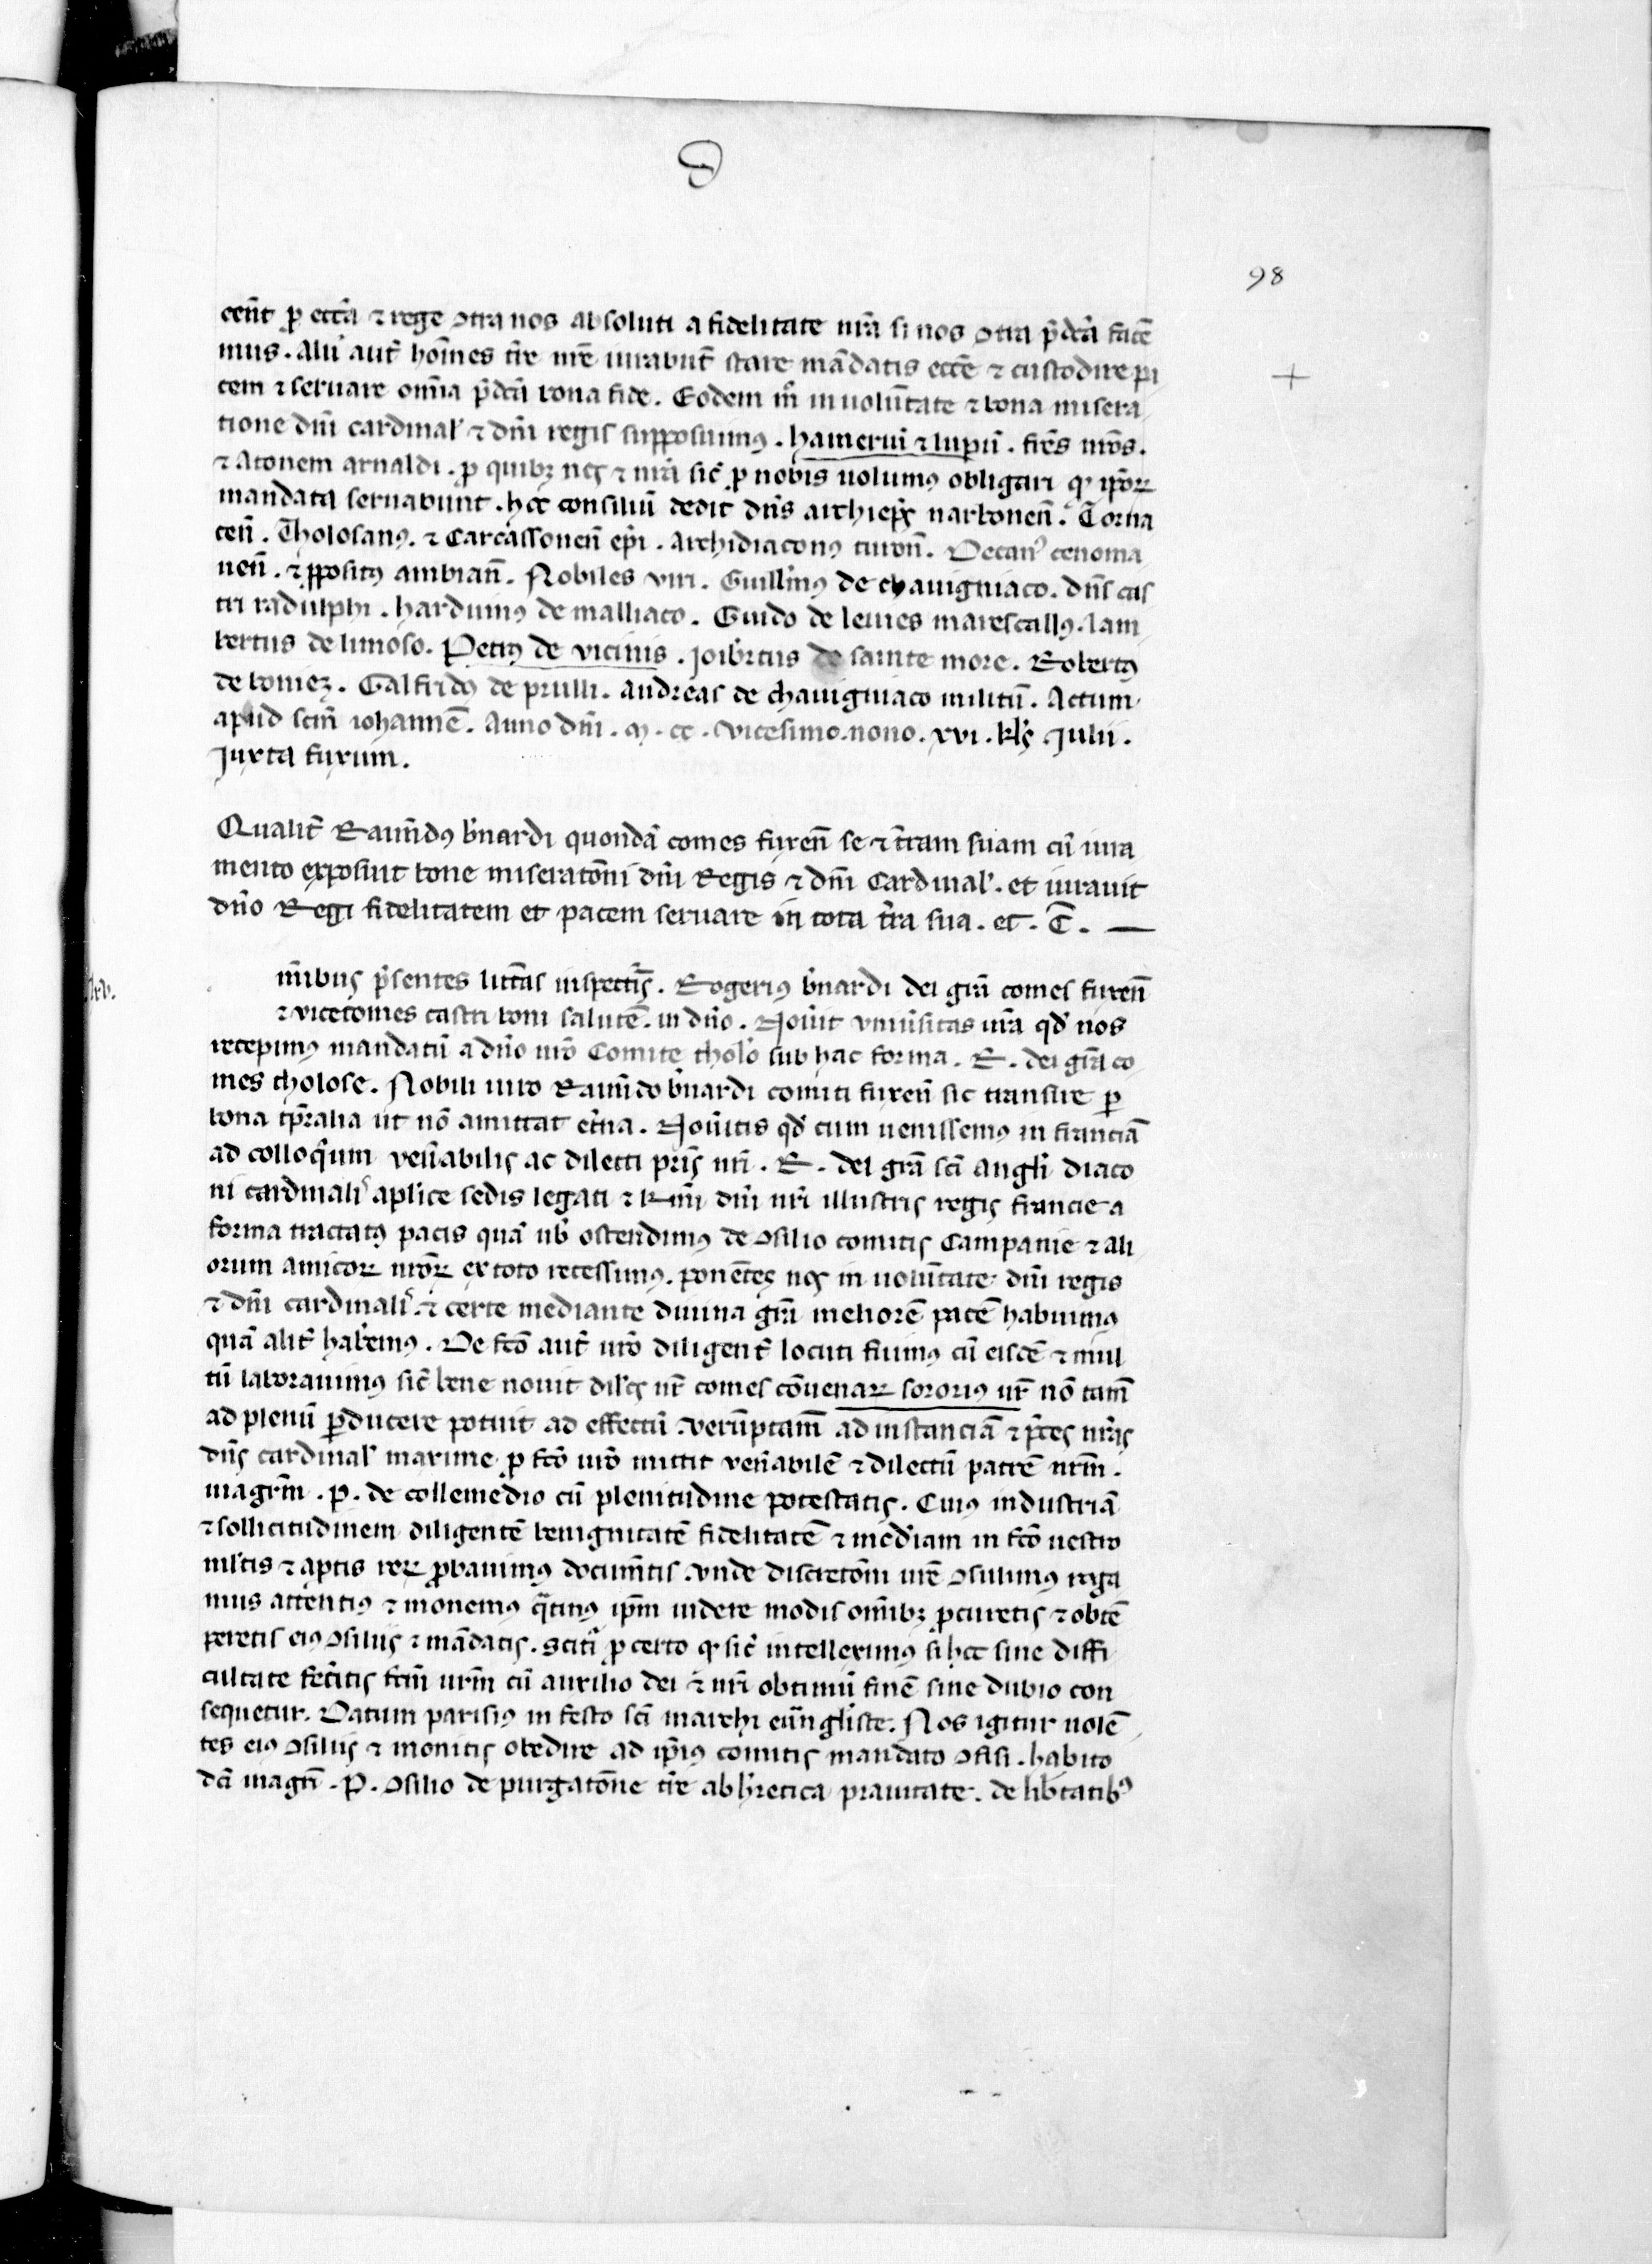 98
cent̃ ꝓ eccᷓa ⁊ rege ꝯtra nos absoluti a fidelitate nr̃a si nos ꝯtra p̃dc̃a facẽ
mus. Alii aut̃ hoĩes tr̃e nr̃e iurabũt stare mãdatis ecc̃e ⁊ custodire pa
cem ⁊ seruare om̃ia p̃dc̃a bona fide. Eodem m̊ in uolũtate ⁊ bona misera
tione dñi cardinal̃ ⁊ dñi regis supposuimꝰ. hamerun̄ ⁊ lupũ. fr̃es nr̃os.
⁊ Atonem arnaldi. ꝓ quibꝫ nos ⁊ nr̃a sic̃ ꝓ nobis uolumꝰ obligari ꝙ ipõꝝ
mandata seruabunt. hoc consiliũ dedit dñs archiep̃s narbonen̄. Torna
cen̄. Tholosanꝰ. ⁊ Carcassonen̄ ep̃i. Archidiaconꝰ turon̄. Decanꝰ cenoma
nen̄. ⁊ p̃positꝰ ambian̄. Nobiles viri. Guill̃mus de chauigniaco. dñs cas
tri radulphi. harduinus de malliaco. Guido de leuies marescallꝰ. lam
bertus de limoso. Petrꝰ de vicinis. Joib̃ertus de sainte more. Robertꝰ
de boniez. Galfridꝰ de prulli. Andreas de chauigniaco militũ. Actum
apud scm̃ iohannẽ. Anno dñi. M. cc. vicesimo nono. xvi. kl̃s Julii.
Juxta fuxum.
Qualit̃ Raim̃dꝰ b̃nardi quondã comes fuxen̄ se ⁊ t̃ram suam cũ iura
mento exposuit bone miseratõni dñi Regis ⁊ dñi Cardinal̃. et iurauit
dño Regi fidelitatem et pacem seruare in tota t̃ra sua. et. C̃.
m̃ibus p̃sentes litt̃as inspectĩs. Rogeriꝰ b̃nardi dei gr̃a comes fuxen̄
⁊ vicecomes castri boni salutẽ. in dño. Nou̾it vniũsitas ur̃a qd̾ nos
recepimꝰ mandatũ a dño nr̃o Comite tholõ sub hac forma. R. dei gr̃a co
mes tholose. Nobili uiro Raim̃do b̃nardi comiti fuxen̄ sic transire ꝑ
bona tp̃ralia ut nõ amittat et̃na. Nou̾itis qd̾ cum uenissemꝰ in franciã
ad colloq̃um ven̾abilis ac dilecti pr̃is nr̃i. R. dei gr̃a sc̃i Angl̃i diaco
ni cardinal̃ apl̃ice sedis legati ⁊ k̃mi dñi nr̃i illustris regis francie a
forma tractatꝰ pacis quã ub̾ ostendimꝰ de ꝯsilio comitis Campanie ⁊ ali
orum amicoꝝ nr̃oꝝ ex toto recessimꝰ. ponẽtes nos in uolũtate dñi regis
⁊ dñi cardinal̃. ⁊ certe mediante diuina gr̃a meliorẽ pacẽ habuimꝰ
quã alit̃ hab̃emꝰ. De fc̃o aut̃ ur̃o diligent̃ locuti fuimꝰ cũ eisdẽ ⁊ mul
tũ laborauimꝰ sic̃ bene nouit dil̃cs ur̃ comes cõuenaꝝ sororiꝰ ur̃ nõ tam̃
ad plenũ ꝑducere potuit ad effectũ. verũptam̃ ad instanciã ⁊ p̃ces nr̃as
dñs cardinal̃ maxime ꝓ fc̃o ur̃o mittit ven̾abilẽ ⁊ dilectũ patrẽ nr̃m.
magr̃m. P. de collemedio cũ plenitudine potestatis. Cuiꝰ industriã
⁊ sollicitudinem diligentẽ benignitatẽ fidelitatẽ ⁊ med̾iam in fc̃o uestro
ml̃tis ⁊ aptis reꝝ ꝓbauimꝰ docum̃tis. vnde discretõni ur̃e ꝯsulimꝰ roga
mus attentiꝰ ⁊ monemꝰ q̃tinꝰ ip̃m uidere modis om̃ibꝫ ꝓcuretis ⁊ obtẽ
peretis eiꝰ ꝯsiliis ⁊ mãdatis. scit̃ ꝓ certo ꝙ sic̃ intelleximꝰ si hoc sine diffi
cultate fec̾itis fcm̃ ur̃m cũ auxilio dei ⁊ nr̃i obtimũ finẽ sine dubio con
sequetur. Datum parisiꝰ in festo sc̃i marchi euãgl̃iste. Nos igitur uolẽ
tes eiꝰ ꝯsiliis ⁊ monitis obedire ad ip̃ius comitis mandato ꝯfisi. habito
dc̃i magr̃i. P. ꝯsilio de purgatõne tr̃e ab h̾etica prauitate. de lib̾tatibꝰ